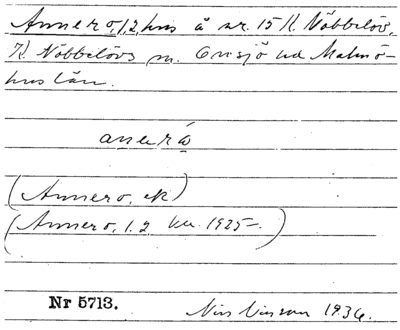 Annero, 1,2, hus å nr. 15 K. Nöbbelöv,
K. Nöbbelövs sn. Onsjö hd Malmö-
hus län.
anerä
(Annero, ek)
(Annero, 1.2 1925–.)
Nr 5713.
1936.